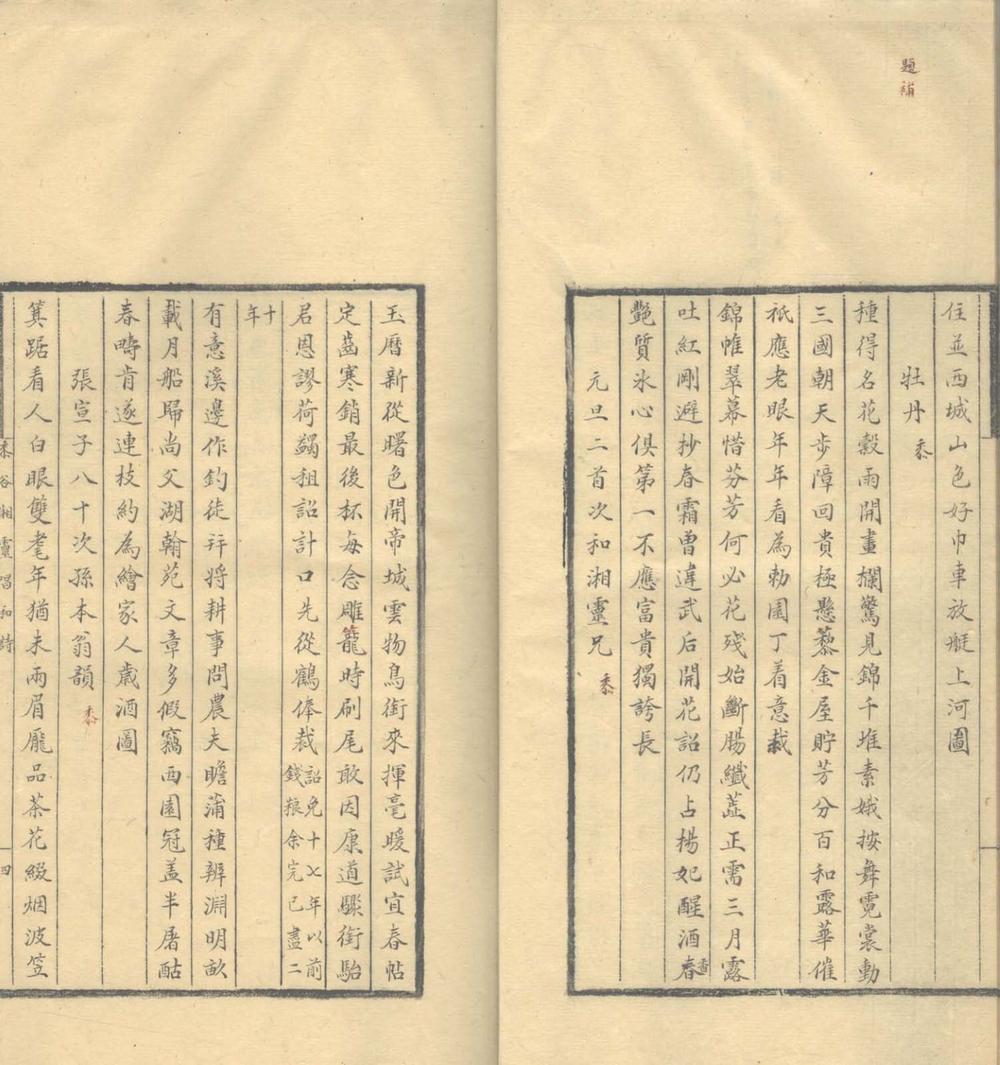 題補
住並西城山色好巾車放艇上河圖
牡丹 黍
種得名花穀雨開畫欄驚見錦千堆素娥按舞霓裳動
三國朝天步障回貴極懸藜金屋貯芳分百和露華催
祇應老眼年年看為勅園丁着意栽
錦帷翠幕惜芬芳何必花殘始斷腸纖蕋正需三月露
吐紅剛避抄春霜曽違武后開花詔仍占楊妃醒酒春
艷質氷心俱第一不應富貴獨誇長
元旦二首次和湘靈兄 黍
玉曆新從曙色開帝城雲物鳥銜來揮毫暖試宜春帖
定齒寒銷最後杯每念雕籠時刷尾敢因康道驟銜駘
君恩謬荷蠲租詔計口先從鶴俸裁詔免十七年以前錢粮余完已盡二
十年
有意溪邊作釣徒幷將耕事問農夫瞻蒲種辨淵明畝
載月船歸尚父湖翰苑文章多假竊西園冠盖半屠酤
春疇肯遂連枝約為繪家人歲酒圖
張宣子八十次孫本翁韻 黍
箕踞看人白眼雙耄年猶未兩眉龐品茶花綴烟波笠
黍谷湘靈唱和詩 四